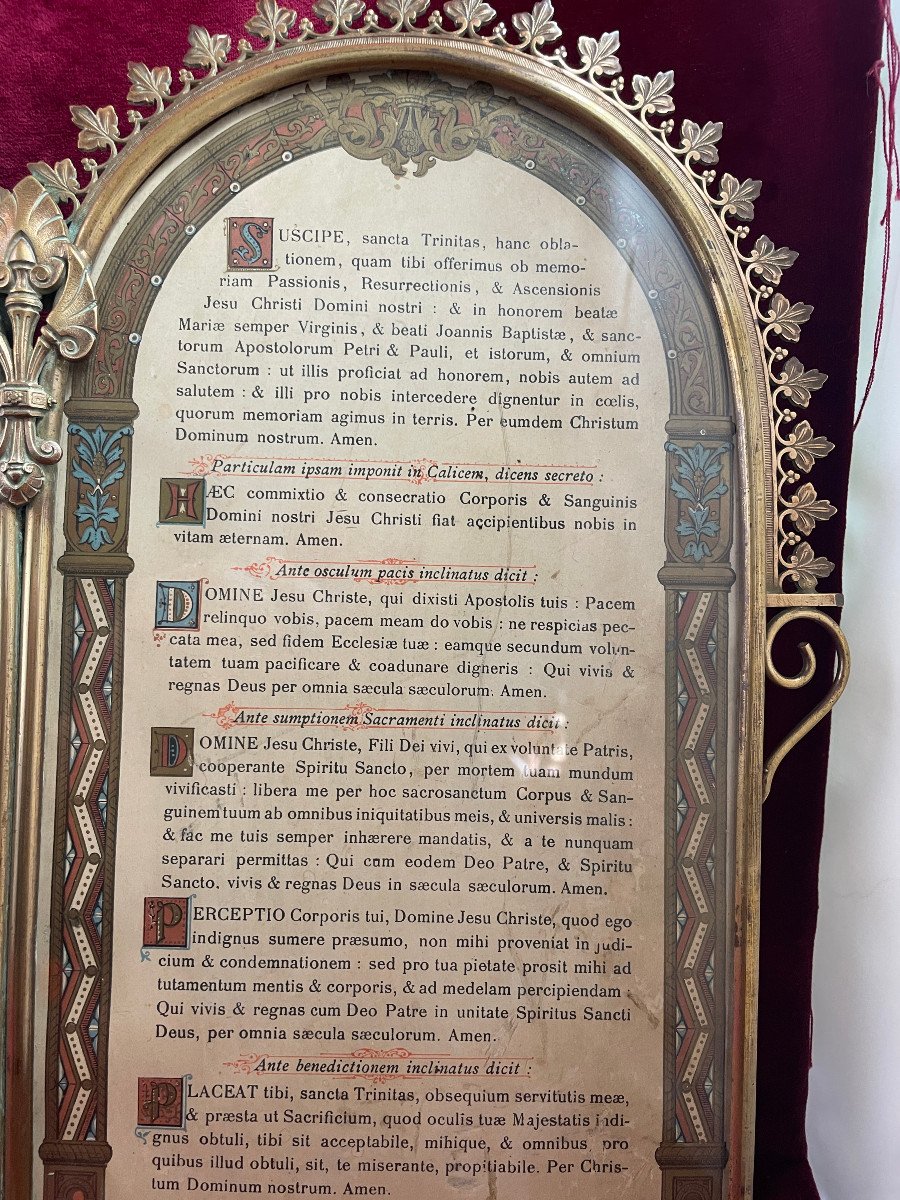 SUSCIPE, sancta Trinitas, hanc obla-
tionem, quam tibi offerimus ob memo-
riam Passionis, Resurrectionis, & Ascensionis
Jesu Christi Domini nostri : & in honorem beatæ
Mariæ semper Virginis, & beati Joannis Baptistæ, & sanc-
torum Apostolorum Petri & Pauli, et istorum, & omnium
Sanctorum : ut illis proficiat ad honorem, nobis autem ad
salutem : & illi pro nobis intercedere dignentur in cœlis,
quorum memoriam agimus in terris. Per eumdem Christum
Dominum nostrum. Amen.
Particulam ipsam imponit in Calicem, dicens secreto :
HÆC commixtio & consecratio Corporis & Sanguinis
Domini nostri Jesu Christi fiat accipientibus nobis in
vitam æternam. Amen.
Ante osculum pacis inclinatus dicit :
DOMINE Jesu Christe, qui dixisti Apostolis tuis : Pacem
relinquo vobis, pacem meam do vobis : ne respicias pec-
cata mea, sed fidem Ecclesiæ tuæ : eamque secundum volun-
tatem tuam pacificare & coadunare digneris : Qui vivis &
regnas Deus per omnia sæcula sæculorum. Amen.
Ante sumptionem Sacramenti inclinatus dicit :
DOMINE Jesu Christe, Fili Dei vivi, qui ex voluntate Patris,
cooperante Spiritu Sancto, per mortem tuam mundum
vivificasti : libera me per hoc sacrosanctum Corpus & San-
guinem tuum ab omnibus iniquitatibus meis, & universis malis :
& fac me tuis semper inhærere mandatis, & a te nunquam
separari permittas : Qui cum eodem Deo Patre, & Spiritu
Sancto. vivis & regnas Deus in sæcula sæculorum. Amen.
PERCEPTIO Corporis tui, Domine Jesu Christe, quod ego
indignus sumere præsumo, non mihi proveniat in judi-
cium & condemnationem : sed pro tua pietate prosit mihi ad
tutamentum mentis & corporis, & ad medelam percipiendam.
Qui vivis & regnas cum Deo Patre in unitate Spiritus Sancti
Deus, per omnia sæcula sæculorum. Amen.
Ante benedictionem inclinatus dicit :
PLACEAT tibi, sancta Trinitas, obsequium servitutis meæ,
& præsta ut Sacrificium, quod oculis tuæ Majestatis indi-
gnus obtuli, tibi sit acceptabile, mihique, & omnibus pro
quibus illud obtuli, sit, te miserante, propitiabile. Per Chris-
tum Dominum nostrum. Amen.